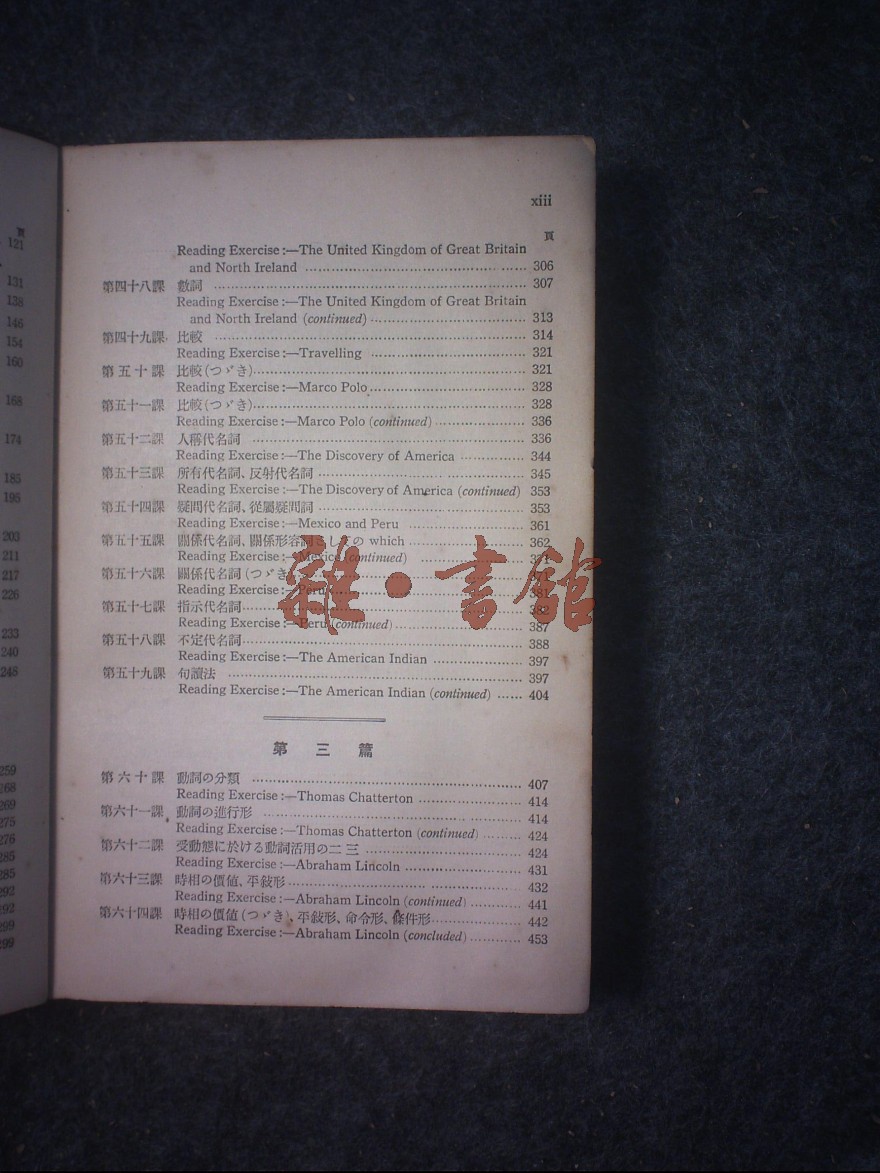 頁
121
131
138
146
154
160
168
174
185
195
203
211
217
226
233
240
248
259
268
269
275
276
285
285
292
292
299
299
xiii
頁
Reading Exercise:—The United Kingdom of Great Britain
and North Ireland ........ 306
第四十八課 數詞 ........ 307
Reading Exercise:—The United Kingdom of Great Britain
and North Ireland (continued) ........ 313
第四十九課 比較 ........ 314
Reading Exercise:—Travelling ........ 321
第五十課 比較(つゞき)........ 321
Reading Exercise:—Marco Polo........ 328
第五十一課 比較(つゞき)........ 328
Reading Exercise:—Marco Polo (continued) ........ 336
第五十二課 人稱代名詞 ........ 336
Reading Exercise:—The Discovery of America ........ 344
第五十三課 所有代名詞、反射代名詞 ........ 345
Reading Exercise:—The Discovery of America (continued) 353
第五十四課 疑問代名詞、從屬疑問詞 ........ 353
Reading Exercise:—Mexico and Peru ........ 361
第五十五課 關係代名詞、關係形容詞としての which ........ 362
Reading Exercise:—Mexico (continued) ........
第五十六課 關係代名詞(つゞき
Reading Exercise:—Peru ........ 381
第五十七課 指示代名詞........ 382
Reading Exercise:—Peru (continued) ........ 387
第五十八課 不定代名詞........ 388
Reading Exercise:—The American Indian ........ 397
第五十九課 句讀法 ........ 397
Reading Exercise:—The American Indian (continued) ...... 404
第三篇
第六十課 動詞の分類 ........ 407
Reading Exercise:—Thomas Chatterton ........ 414
第六十一課 動詞の進行形 ........ 414
Reading Exercise:—Thomas Chatterton (continued) ........ 424
第六十二課 受動態に於ける動詞活用の二三 ........ 424
Reading Exercise:—Abraham Lincoln ........ 431
第六十三課 時相の價値、平敍形........ 432
Reading Exercise:—Abraham Lincoln (continued) ........ 441
第六十四課 時相の價値(つゞき)、平敍形、命令形、條件形........ 442
Reading Exercise:—Abraham Lincoln (concluded) ........ 453
雜·書館